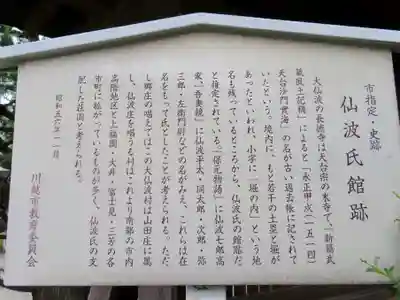 市指定・史跡
仙波氏館跡
大仙波の長徳寺は天台宗の末寺で、『新篇武
蔵風土記稿』によると「永正甲戌(一五一四)
天台沙門実海」の名が古い過去帳に記されて
いたという。境内に、もと若干の土塁と堀が
あったといわれ、小字に「堀の内」という地
名も残っているところから、仙波氏の館跡だ
と推定されている。『保元物語』に仙波七郎高
家、『吾妻鏡』に仙波平太・同太郎・次郎・弥
三郎・左衛門尉などの名がみえ、これらは在
名をもって氏としたことが考えられる。ただ
し郷庄の唱えではこの大仙波村は山田庄に属
し、仙波庄を唱うる村はこれより南部の市内
高階地区と上福岡・大井・富士見・三芳の各
市町に拡がっているものが多く、仙波氏の支
配した庄園と考えられる。
昭和五六年一一月
川越市教育委員会